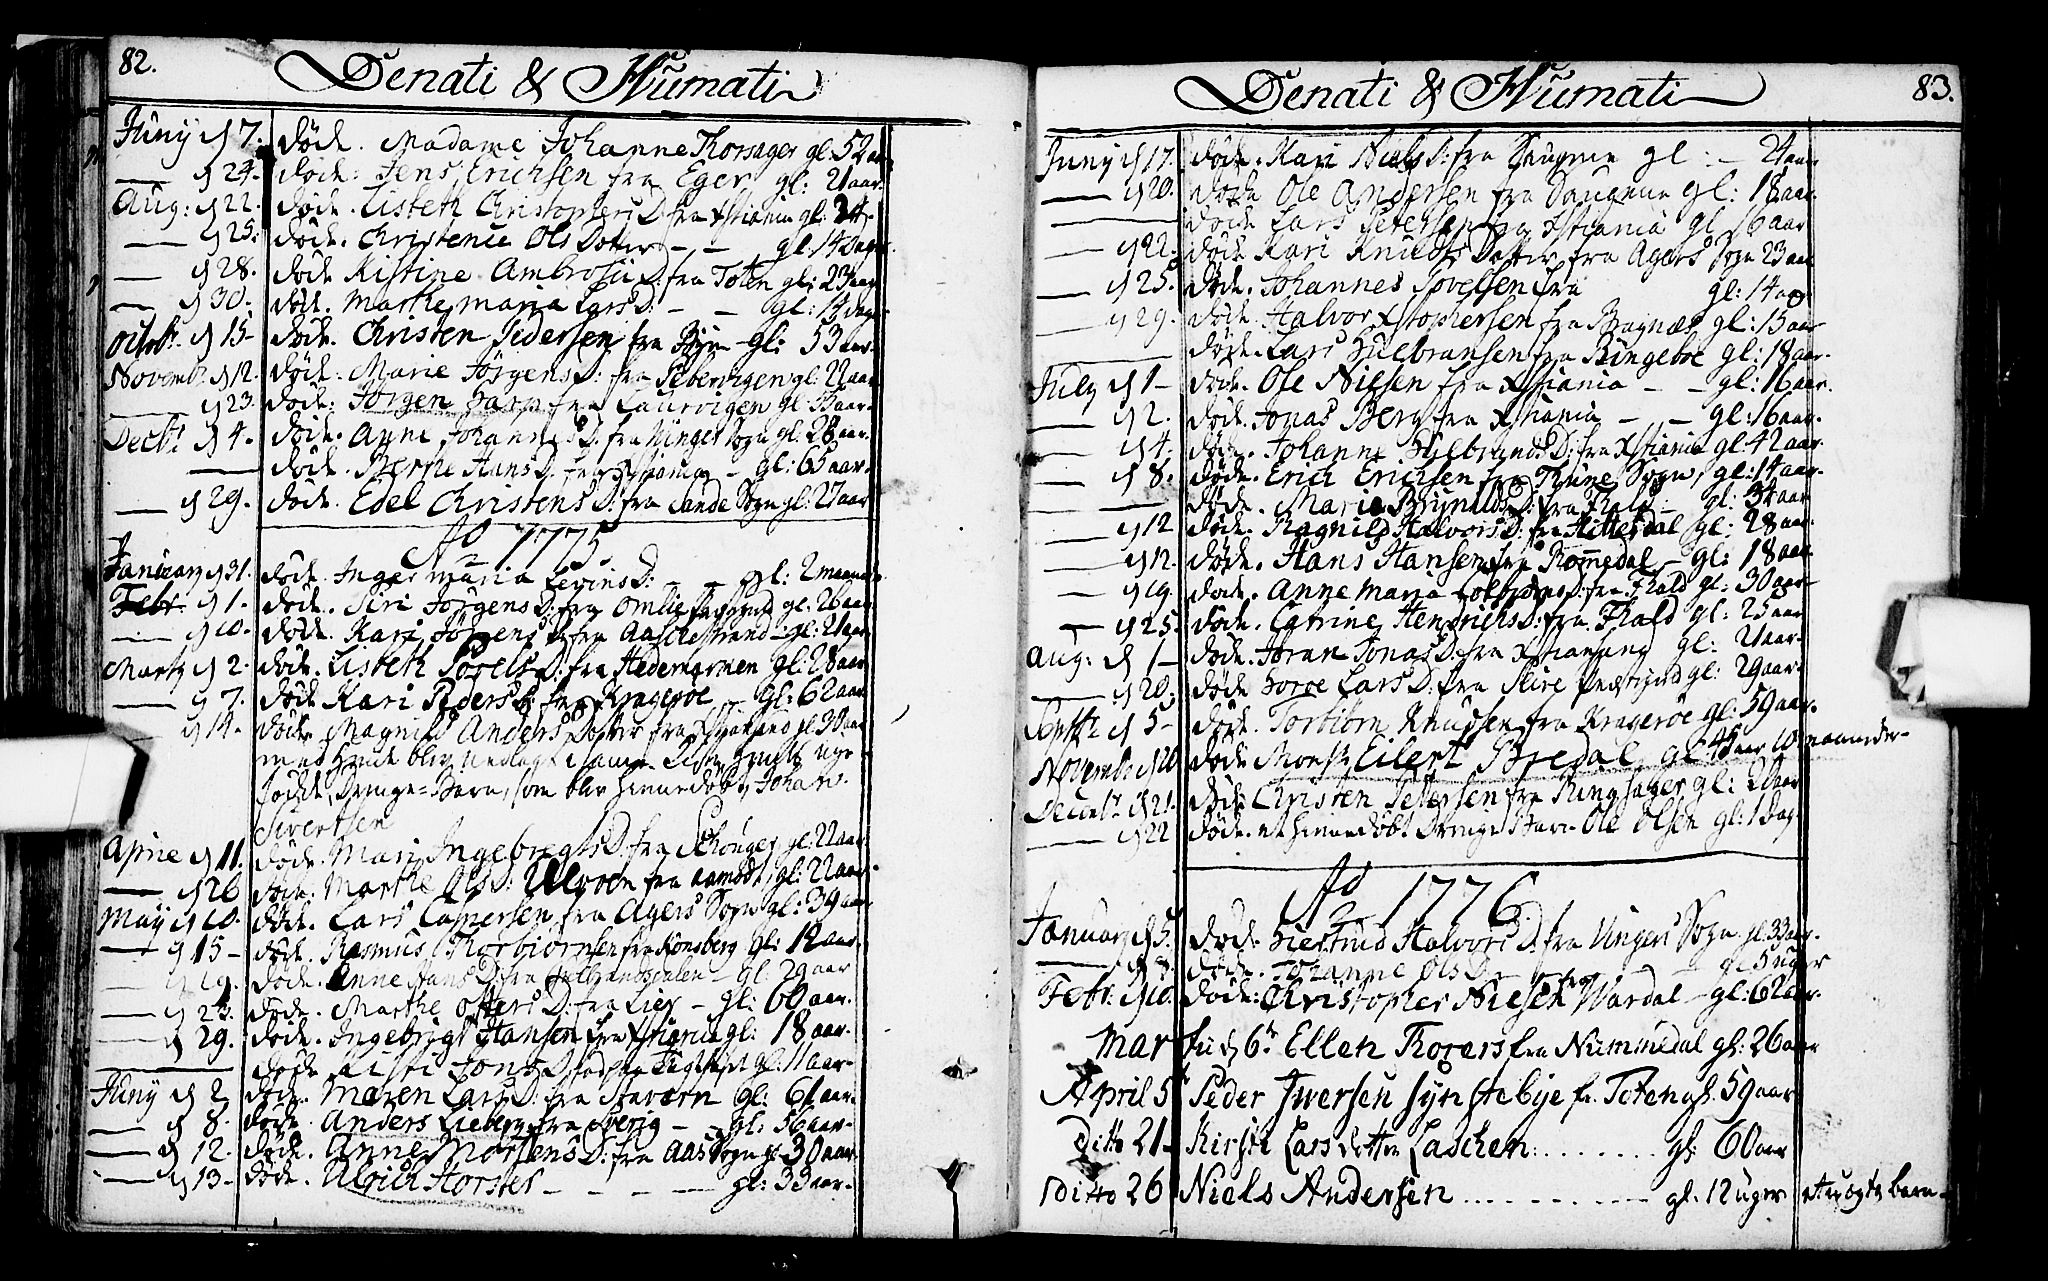 82.
Denati & Humati
Juny d 7. døde. Madame Johanne Thorsager gl: 52 aar
d 24. døde. Jens Erichsen fra Eger gl: 21 aar.
Aug: d 22. døde. Lisbeth Christophers D. fra Xstiania gl: 24
d 25. døde. Christence Ols Dotter - - gl: 14 Dage
d 28. døde Kistine Ambrosii D: fra Toten gl: 23 aar
d 30. død. Marthe maria Lars D: - - gl: 14 dage
Octob: d 15- døde. Christen Pedersen fra Bye - gl: 53 aar.
Novemb: d 12. døde. Marie Jørgens D: fra Pebervigen gl: 22 aar
d 23. døde. Jørgen Harp fra Laurvigen gl: 33 aar.
Decbr d 4. døde. Anne Johannes D. fra Vinger Sogn gl: 28 aar.
døde. Berthe Hans D. fra Xstiania - gl: 65 aar.
d 29. døde. Edel Christens D: fra Sande Sogn gl: 27 aar
Ao 1775
January d 31. døde. Inger maria Levins D: - - gl: 2 maaneder
Febr. d 1. døde. Siri Jørgens D: fra Omlie gl: 26 aar.
d 10. døde. Kari Jørgens D. fra Aasgestrand - gl: 21 aar
Marty d 2. døde. Lisbeth Povels D: fra Hedemarken gl: 28 aar
d 7. døde Kari Peders D: fra Kragerøe - gl: 62 aar
d 14. døde Magnild Anders Dotter fra gl: 30 aar
med hende blev nedlagt i samme Kiste hendes nye
fødde, Drenge-Barn, som blev hiemmedøbt, Johan
Sivertsen
Aprie d 11. døde. Mari Ingebregts D. fra gl: 22 aar.
d 26 døde. Marthe Ols D: Ulvoen fra aamodt, gl: 22 aar.
Maij d 10. døde. Lars Caspersen fra Agers Sogn gl: 39 aar
d 15 - døde. Rasmus Thorbiørnsen fra Kongsberg gl: 12 aar.
d 19. døde. Anne Hans D: fra Gulbrandsdalen - gl: 29 aar
d 23. døde. Marthe Ofters D: fra Lier - gl: 60 aar.
d 29. døde. Ingebrigt Hansen fra Xstiania gl: 18 aar.
døde Kisti Jons D. gl: 11 aar-
Juny d 2 døde. Maren Lars D: fra Stavern gl: 61 aar.
d 8. døde. Anders Lieberg fra Sverig - - gl: 56 aar.
d 12. døde. Anne Mortens D: fra Aas Sogn gl 30 aar.
d 13- døde. Ulrich Horster - - - - gl: 33 aar.
83.
Denati & Humati
Juny d 17. døde. Kari Niels D: fra gl: - 24 aar
d 20. døde Ole Andersen fra gl: 18 aar.
døde Lars Petersen fra Xstiania gl 16 aar
d 22. døde Kari Knuds Dotter fra Agers Sogn 23 aar
d 25. døde. Johannes Povelsen fra gl: 14 aar
d 29. døde Halvor Xstophersen fra Bragnæs, gl: 15 aar
døde. Lars Hulbransen fra Ringeboe gl: 18 aar.
July d 1 - døde. Ole Nielsen fra Xstiania - - gl: 16 aar.
d 2. døde Jonas Berg fra Xstiania - - gl: 16 aar.
d 4. døde. Johanne Hulbrands D: fra Xstiania gl: 42 aar.
d 8. døde. Erich Erichsen fra Thune Sogn, gl: 14 aar.
døde. Marie Brynilds D: fra Fhald - gl: 34 aar
d 12 døde. Ragnild Halvors D: fra Hitterdal gl: 28 aar
d 12. døde. Hans Hansen fra Romedal - gl: 18 aar
d 19. døde. Anne Maria D: fra Fhald gl: 30 aar
d 25. døde. Catrine Hendrichs D: fra Fhald gl: 25 aar
Aug: d 1 - døde. Jøran Jonas D: fra Xstiansand gl: 21 aar-
d 20. døde Lars D: fra Slire Præstegield gl: 29 aar.
Septbr d 5- døde. Torbiørn Knudsen fra Kragerøe gl: 59 aar.
Novembr d 20 døde Monsr Eilert Bredal gl: 45 aar 10 maaneder-
Decembr d 21. døde. Christen Petersen fra Ringsager gl: 21 aar
d 22 døde. et hiemmedøbt Drenge Barn Ole Olsen gl: 1 dag
Ao 1776
January d 5. døde. Giertrud Halvors D. fra Vingers Sogn gl: 33 aar.
d 7. døde. Johanne Ols D - - gl 5 uger
Febr. d 10. døde: Christopher Niels fra Wardal - gl: 62 aar.
Martii d 6te Ellen Thorers fra Nummedal gl: 26 aar
April 5t Peder Iversen Synstebye fr. Toten gl. 59 aar
Ditto 21- Kirsti Lars Dotter Laschen: . . . . . . . gl: 60 aar
Ditto 26 Niels Andersen . . . . . . . gl: 12 uger et uægte barn -